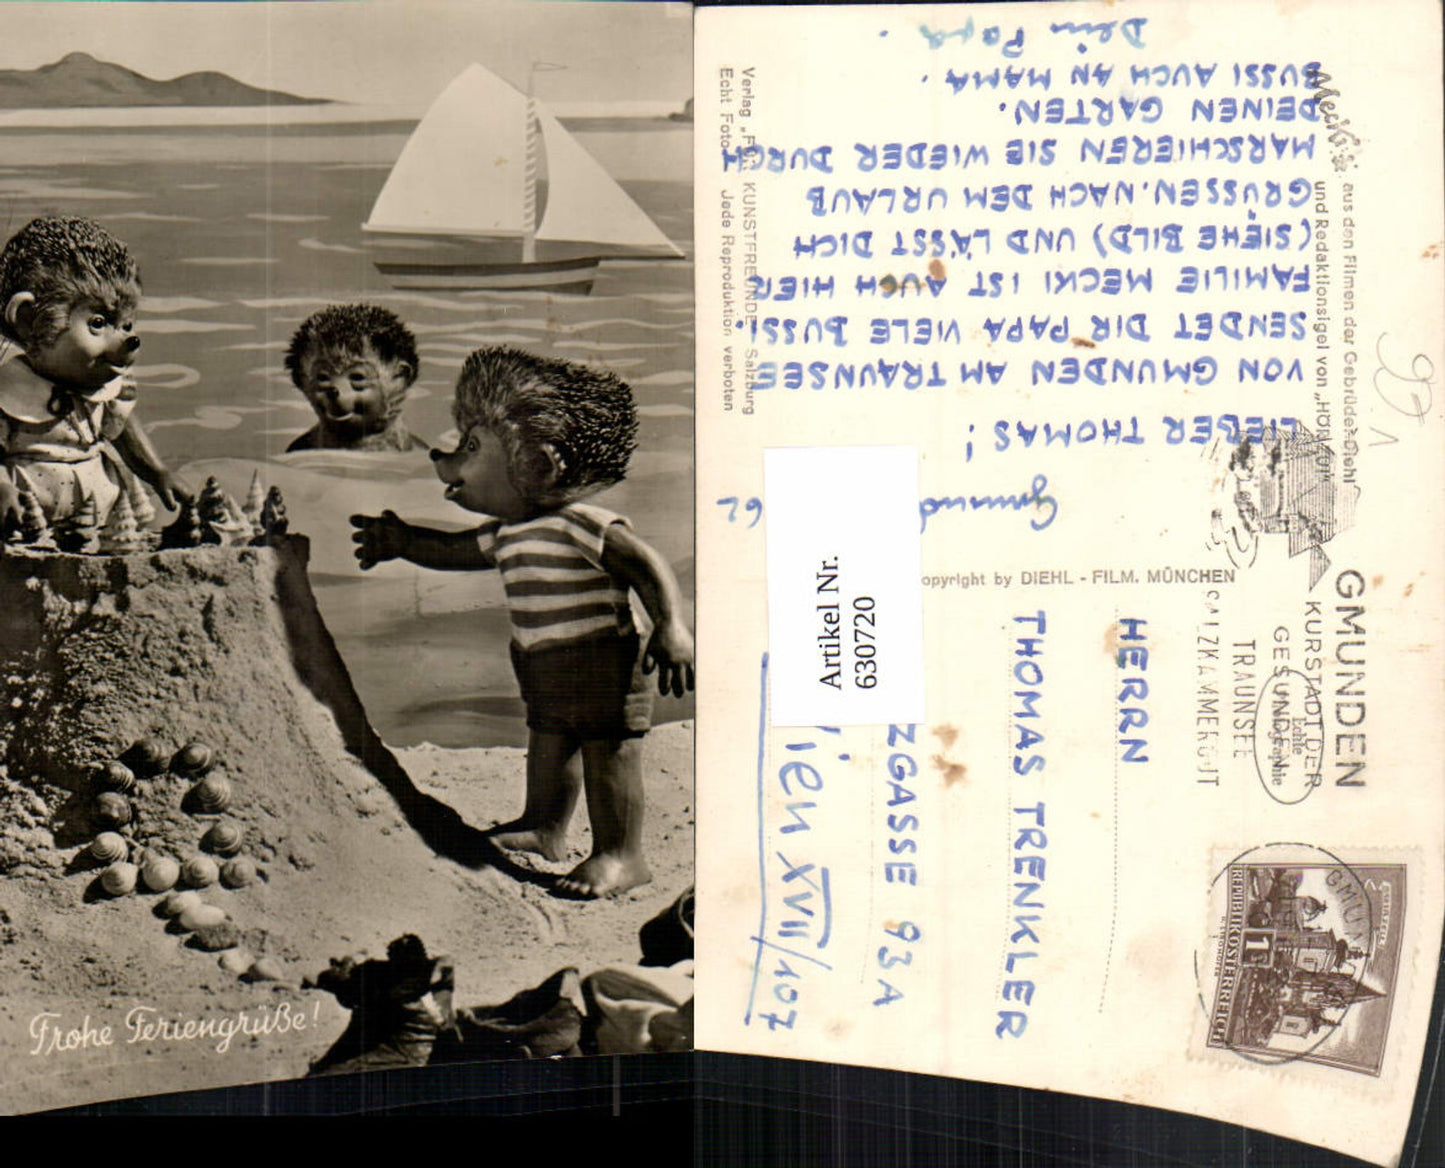 Frohe Feriengrüße!
Gmund
62
LIEBER THOMAS!
VON GMUNDEN AM TRAUNSEE
SENDET DIR PAPA VIELE BUSSI.
FAMILIE MECKI IST AUCH HIER
(SIEHE BILD) UND LÄSST DICH
GRÜSSEN. NACH DEM URLAUB
MARSCHIEREN SIE WIEDER DURCH
DEINEN GARTEN.
BUSSI AUCH AN MAMA.
Dein Papa.
Mecki
aus den Filmen der Gebrüder Diehl
und Redaktionsigel von „HÖR ZU!"
Verlag „FÜR KUNSTFREUNDE" Salzburg
Echt Foto Jede Reproduktion verboten
opyright by DIEHL - FILM. MÜNCHEN
Artikel Nr.
630720
GMUNDEN
KURSTADT DER
GESUNDEN
TRAUNSEE
SALZKAMMERGUT
Echte
REPUBLIK ÖSTERREICH
1
GMUN
HERRN
THOMAS TRENKLER
ZGASSE 93A
ien XVII/107